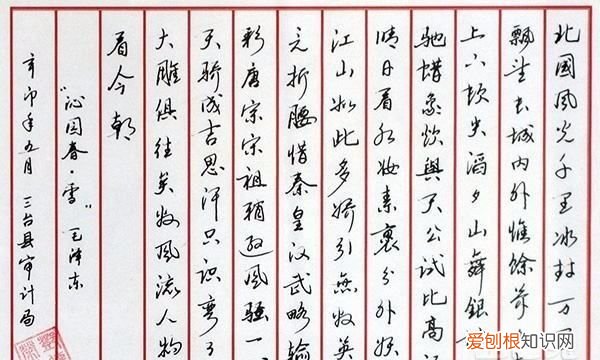 北國風光千里冰封万
飘望长城内外惟馀莽
上下顿失滔々山舞銀
驰蜡象欲與天公试比高
晴日看红妆素裹分外妖
江山如此多娇引無数英
竞折腰惜秦皇汉武略输
彩唐宗宋祖稍逊風骚一
天骄成吉思汗只识弯
大雕俱往矣数風流人物
看今朝
"沁园春·雪" 毛泽东
辛卯年五月 三台县审计局
爱刨根知识网